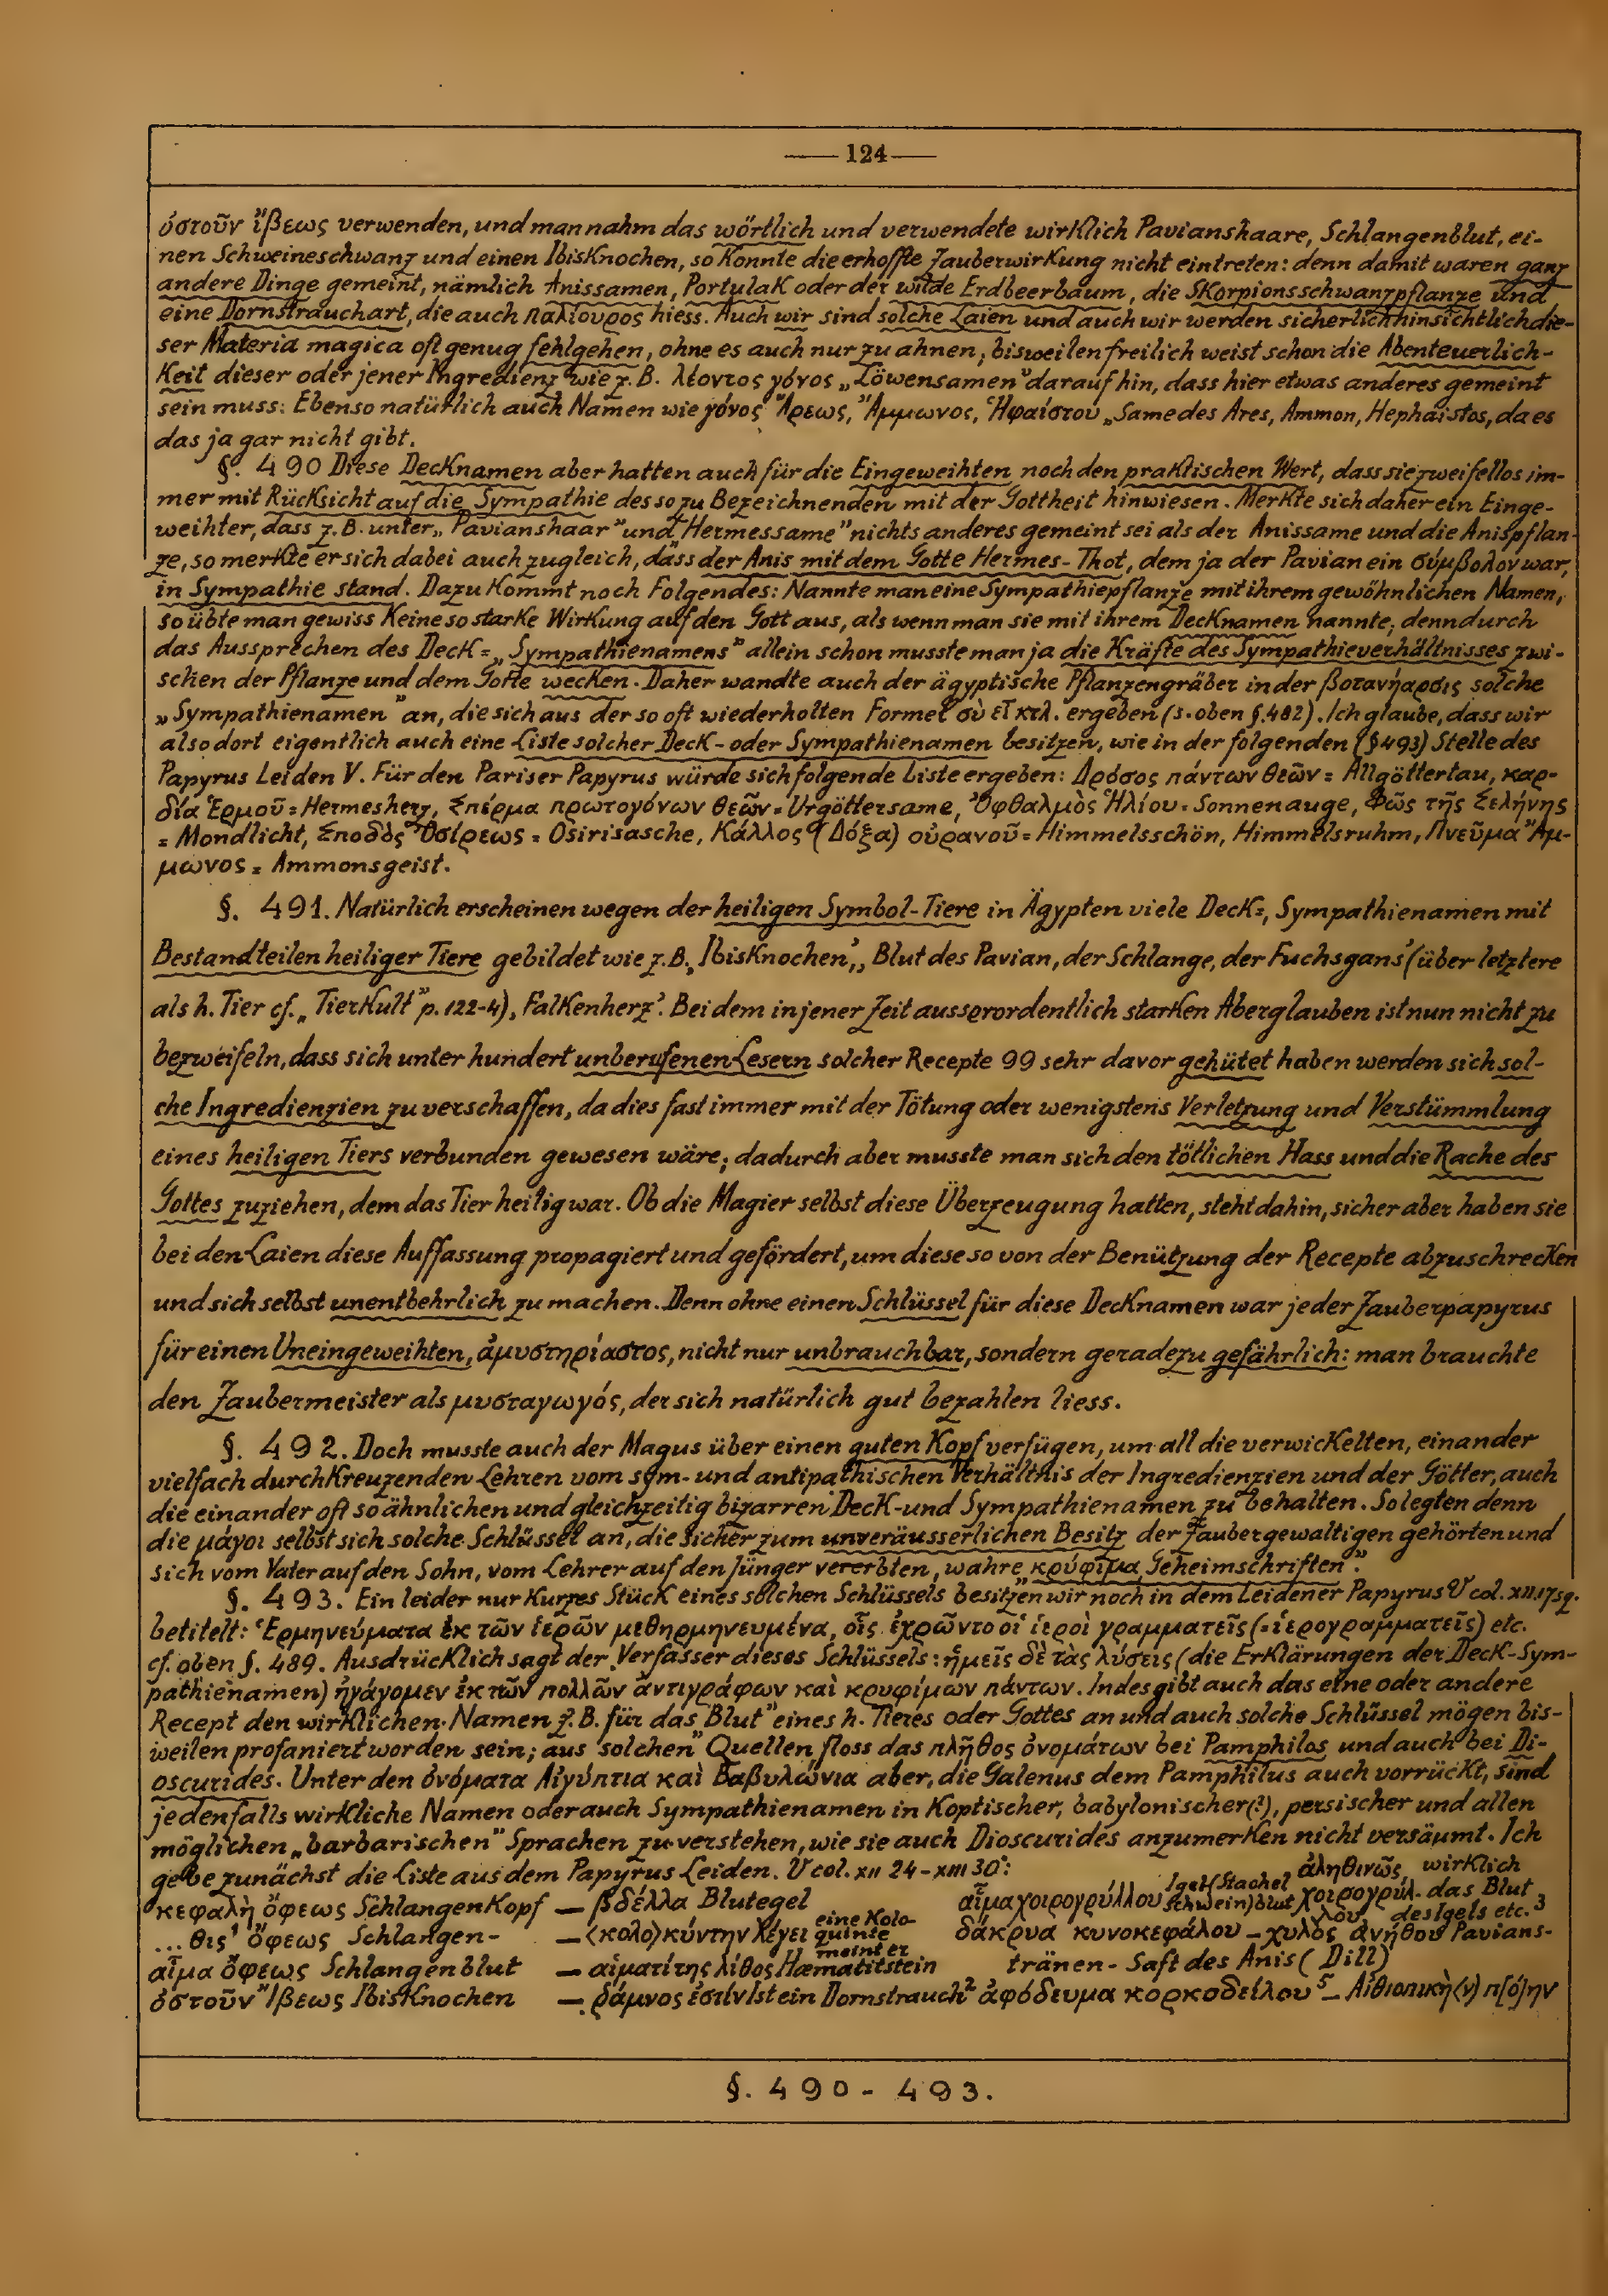 124
ὀστοῦν ἴβεως verwenden, und man nahm das wörtlich und verwendete wirklich Pavianshaare, Schlangenblut, ei-
nen Schweineschwanz und einen Ibisknochen, so konnte die erhoffte Zauberwirkung nicht eintreten: denn damit waren ganz
andere Dinge gemeint, nämlich Anissamen, Portulak oder der wilde Erdbeerbaum, die Skorpionsschwanzpflanze und
eine Dornstrauchart, die auch παλίουρος hiess. Auch wir sind solche Laien und auch wir werden sicherlich hinsichtlich die-
ser Materia magica oft genug fehlgehen, ohne es auch nur zu ahnen; bisweilen freilich weist schon die Abenteuerlich-
keit dieser oder jener Ingredienz wie z.B. λέοντος γόνος „Löwensamen" darauf hin, dass hier etwas anderes gemeint
sein muss: Ebenso natürlich auch Namen wie γόνος Ἄρεως, Ἄμμωνος, Ἡφαίστου „Same des Ares, Ammon, Hephaistos, da es
das ja gar nicht gibt.
§. 490 Diese Decknamen aber hatten auch für die Eingeweihten noch den praktischen Wert, dass sie zweifellos im-
mer mit Rücksicht auf die Sympathie des so zu Bezeichnenden mit der Gottheit hinwiesen. Merkte sich daher ein Einge-
weihter, dass z.B. unter „Pavianshaar" und „Hermessame" nichts anderes gemeint sei als der Anissame und die Anispflan-
ze, so merkte er sich dabei auch zugleich, dass der Anis mit dem Gotte Hermes-Thot, dem ja der Pavian ein σύμβολον war,
in Sympathie stand. Dazu kommt noch Folgendes: Nannte man eine Sympathiepflanze mit ihrem gewöhnlichen Namen,
so übte man gewiss keine so starke Wirkung auf den Gott aus, als wenn man sie mit ihrem Decknamen nannte; denn durch
das Aussprechen des Deck= „Sympathienamens" allein schon musste man ja die Kräfte des Sympathieverhältnisses zwi-
schen der Pflanze und dem Gotte wecken. Daher wandte auch der ägyptische Pflanzengräber in der βοτανήαρσις solche
„Sympathienamen" an, die sich aus der so oft wiederholten Formel σὺ εἶ κτλ. ergeben (s. oben §.482). Ich glaube, dass wir
also dort eigentlich auch eine Liste solcher Deck- oder Sympathienamen besitzen, wie in der folgenden (§493) Stelle des
Papyrus Leiden V. Für den Pariser Papyrus würde sich folgende Liste ergeben: Δρόσος πάντων θεῶν = Allgöttertau, καρ-
δία Ἑρμοῦ = Hermesherz, Σπέρμα πρωτογόνων θεῶν = Urgöttersame, Ὀφθαλμὸς Ἡλίου = Sonnenauge, Φῶς τῆς Σελήνης
= Mondlicht, Σποδὸς Ὀσίρεως = Osirisasche, Κάλλος (Δόξα) οὐρανοῦ = Himmelsschön, Himmelsruhm, Πνεῦμα Ἄμ-
μωνος = Ammonsgeist.
§. 491. Natürlich erscheinen wegen der heiligen Symbol-Tiere in Ägypten viele Deck=, Sympathienamen mit
Bestandteilen heiliger Tiere gebildet wie z.B. ‚Ibisknochen', ‚Blut des Pavian, der Schlange, der Fuchsgans' (über letztere
als h. Tier cf. „Tierkult" p. 122-4), ‚Falkenherz'. Bei dem in jener Zeit ausserordentlich starken Aberglauben ist nun nicht zu
bezweifeln, dass sich unter hundert unberufenen Lesern solcher Recepte 99 sehr davor gehütet haben werden sich sol-
che Ingredienzien zu verschaffen, da dies fast immer mit der Tötung oder wenigstens Verletzung und Verstümmlung
eines heiligen Tiers verbunden gewesen wäre; dadurch aber musste man sich den tötlichen Hass und die Rache des
Gottes zuziehen, dem das Tier heilig war. Ob die Magier selbst diese Überzeugung hatten, steht dahin, sicher aber haben sie
bei den Laien diese Auffassung propagiert und gefördert, um diese so von der Benützung der Recepte abzuschrecken
und sich selbst unentbehrlich zu machen. Denn ohne einen Schlüssel für diese Decknamen war jeder Zauberpapyrus
für einen Uneingeweihten, ἀμυστηρίαστος, nicht nur unbrauchbar, sondern geradezu gefährlich: man brauchte
den Zaubermeister als μυσταγωγός, der sich natürlich gut bezahlen liess.
§. 492. Doch musste auch der Magus über einen guten Kopf verfügen, um all die verwickelten, einander
vielfach durchkreuzenden Lehren vom sym- und antipathischen Verhältnis der Ingredienzien und der Götter, auch
die einander oft so ähnlichen und gleichzeitig bizarren Deck- und Sympathienamen zu behalten. So legten denn
die μάγοι selbst sich solche Schlüssel an, die sicher zum unveräusserlichen Besitz der Zaubergewaltigen gehörten und
sich vom Vater auf den Sohn, vom Lehrer auf den Jünger vererbten, wahre κρύφιμα „Geheimschriften".
§. 493. Ein leider nur kurzes Stück eines solchen Schlüssels besitzen wir noch in dem Leidener Papyrus V col. XII.17sq.
betitelt: Ἑρμηνεύματα ἐκ τῶν ἱερῶν μεθηρμηνευμένα, οἷς ἐχρῶντο οἱ ἱεροὶ γραμματεῖς (=ἱερογραμματεῖς) etc.
cf. oben §. 489. Ausdrücklich sagt der Verfasser dieses Schlüssels: ἡμεῖς δὲ τὰς λύσεις (die Erklärungen der Deck-Sym-
pathienamen) ἠγάγομεν ἐκ τῶν πολλῶν ἀντιγράφων καὶ κρυφίμων πάντων. Indes gibt auch das eine oder andere
Recept den wirklichen Namen z.B. für das „Blut" eines h. Tieres oder Gottes an und auch solche Schlüssel mögen bis-
weilen profaniert worden sein; aus solchen Quellen floss das πλῆθος ὀνομάτων bei Pamphilos und auch bei Di-
oscurides. Unter den ὀνόματα Αἰγύπτια καὶ Βαβυλώνια aber, die Galenus dem Pamphilus auch vorrückt, sind
jedenfalls wirkliche Namen oder auch Sympathienamen in koptischer, babylonischer(?), persischer und allen
möglichen „barbarischen" Sprachen zu verstehen, wie sie auch Dioscurides anzumerken nicht versäumt. Ich
gebe zunächst die Liste aus dem Papyrus Leiden. V col. XII 24 - XIII 30:
κεφαλὴ ὄφεως Schlangenkopf — βδέλλα Blutegel
...θις¹ ὄφεως Schlangen- — <κολο>κύντην λέγει eine Kolo-quinte meint er
αἷμα ὄφεως Schlangenblut — αἱματίτης λίθος Hæmatitstein
ὀστοῦν Ἴβεως Ibisknochen — ῥάμνος ἐστίν Ist ein Dornstrauch²
αἷμα χοιρογρύλλου Igel(Stachel schwein)blut ἀληθινῶς χοιρογρύλ-λου wirklich das Blut des Igels etc.³
δάκρυα κυνοκεφάλου — χυλὸς ἀνήθου Pavians-
tränen - Saft des Anis (Dill)
ἀφόδευμα κορκοδείλου⁵ — Αἰθιοπικὴ(ν) π[ό]ην
§. 490 - 493.